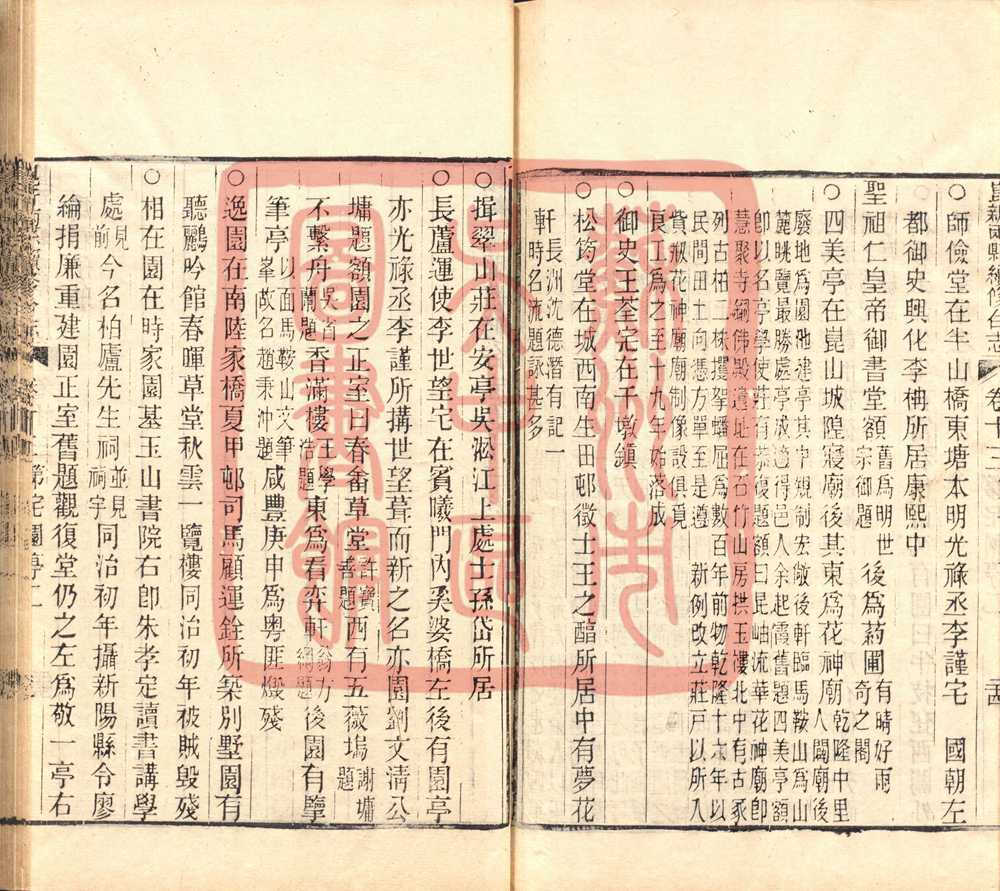 崑新兩縣續修合志 卷十三
○師儉堂在半山橋東塘本明光祿丞李謹宅　國朝左
都御史興化李柟所居康熙中
聖祖仁皇帝御書堂額舊為明世宗御題後為葯圃有晴好雨奇之閣
○四美亭在崑山城隍寢廟後其東為花神廟乾隆中里人闢廟後
廢地為園池建亭其中規制宏敞後軒臨馬鞍山為山
麓眺覽最勝處亭成適得邑人余起霞舊題四美亭額
卽以名亭學使莊有恭復題額曰昆岫流華花神廟卽
慧聚寺銅佛殿遺址在石竹山房拱玉樓北中有古豕
列古柏二株攫拏蟠屈為數百年前物乾隆十六年以
民間田土向憑方單至是遵　新例改立莊戶以所入
貲祓花神廟廟制像設俱覓
良工為之至十九年始落成
○御史王荃宅在千墩鎮
○松筠堂在城西南生田邨徵士王之醕所居中有夢花
軒長洲沈德潛有記一時名流題詠甚多
○揖翠山莊在安亭吳淞江上處士孫岱所居
○長蘆運使李世望宅在賓曦門內奚婆橋左後有園亭
亦光祿丞李謹所搆世望葺而新之名亦園劉文淸公
墉題額園之正室曰春畬草堂許寶善題西有五薇塢謝墉題
不繫舟吳省蘭題香滿樓王學浩題東為看弈軒翁方綱題後園有鹽
筆亭以面馬鞍山文筆峯故名趙秉沖題咸豐庚申為粵匪燬殘
○逸園在南陸家橋夏甲邨司馬顧運銓所築別墅園有
聽鸝吟館春暉草堂秋雲一覽樓同治初年被賊毀殘
○相在園在時家園基玉山書院右卽朱孝定讀書講學
處見前今名柏廬先生祠並見祠宇同治初年攝新陽縣令廖
綸捐廉重建園正室舊題觀復堂仍之左為敬一亭右
第宅園亭二